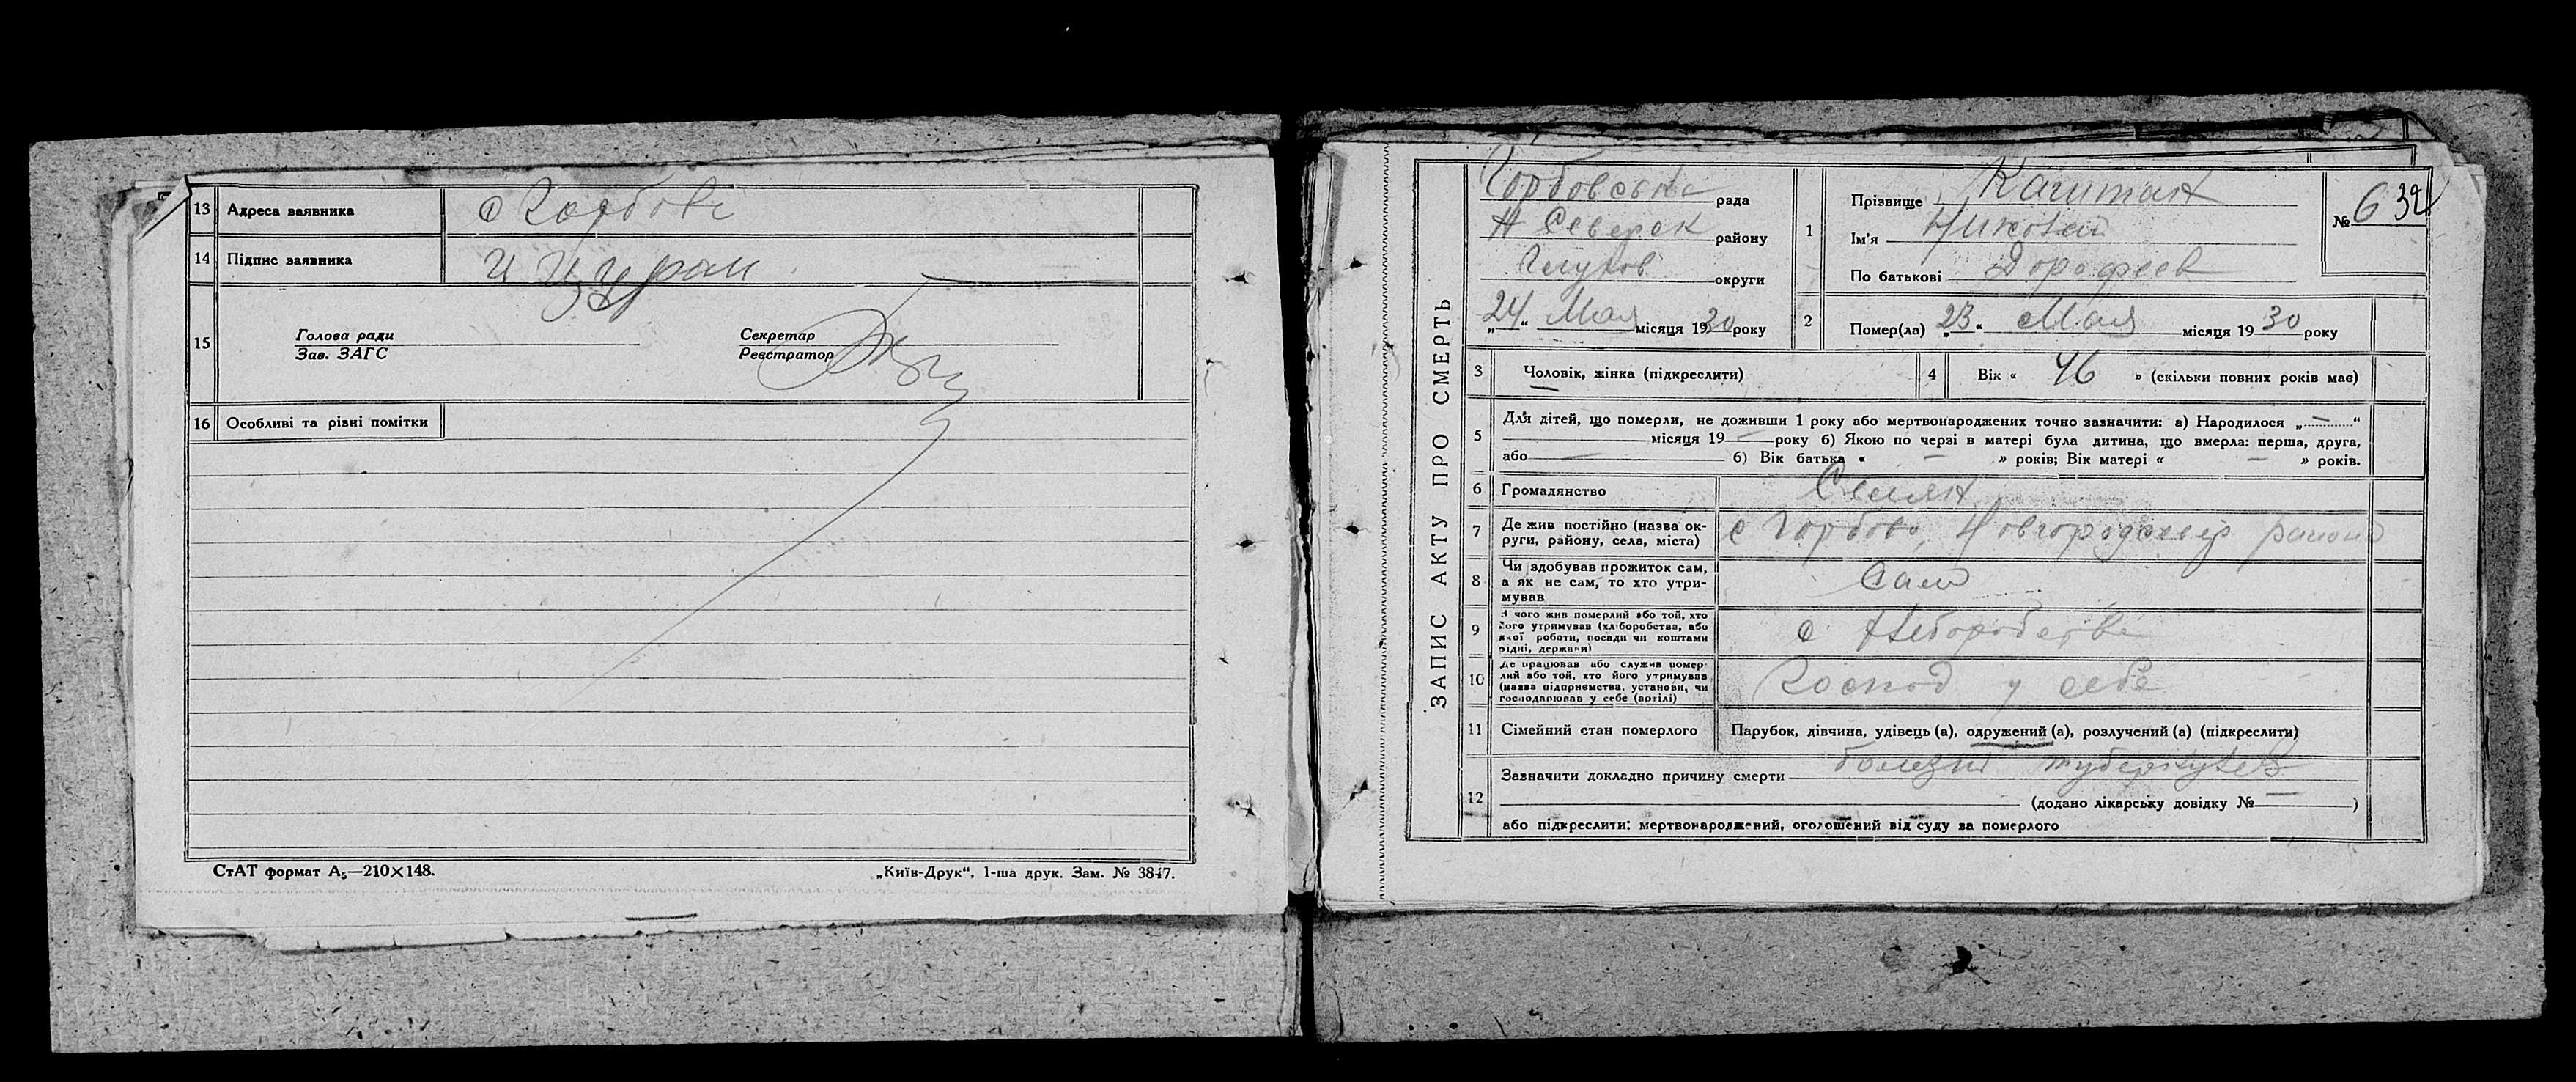 13 Адреса заявника с Горбово
14 Підпис заявника
15 Голова ради Секретар
Зав. ЗАГС Реєстратор
16 Особливі та різні помітки
СтАТ формат А₅—210×148. „Київ-Друк“, 1-ша друк. Зам. № 3847.
ЗАПИС АКТУ ПРО СМЕРТЬ
Горбовська рада
Н Северск району
Глухов округи
„24“ Мая місяця 1930 року
№ 6 32
1 Прізвище Каштан
Ім'я Николай
По батькові Дорофеев
2 Помер(ла) „23“ Мая місяця 1930 року
3 Чоловік, жінка (підкреслити)
4 Вік « 46 » (скільки повних років має)
5 Для дітей, що померли, не доживши 1 року або мертвонароджених точно зазначити: а) Народилося „—“
місяця 19— року б) Якою по черзі в матері була дитина, що вмерла: перша, друга,
або — б) Вік батька « — » років; Вік матері « — » років.
6 Громадянство Селян
7 Де жив постійно (назва ок-
руги, району, села, міста) с Горбово, Новгородсевер района
8 Чи здобував прожиток сам,
а як не сам, то хто утри-
мував Сам
9 З чого жив померлий або той, хто
його утримував (хліборобства, або
якої роботи, посади чи коштами
рідні, держави) с
10 Де працював або служив помер-
лий або той, хто його утримував
(назва підприємства, установи, чи
господарював у себе (артілі) Господ у себе
11 Сімейний стан померлого Парубок, дівчина, удівець (а), одружений (а), розлучений (а) (підкреслити)
12 Зазначити докладно причину смерти болезни туберкулез
(додано лікарську довідку № — )
або підкреслити: мертвонароджений, оголошений від суду за померлого